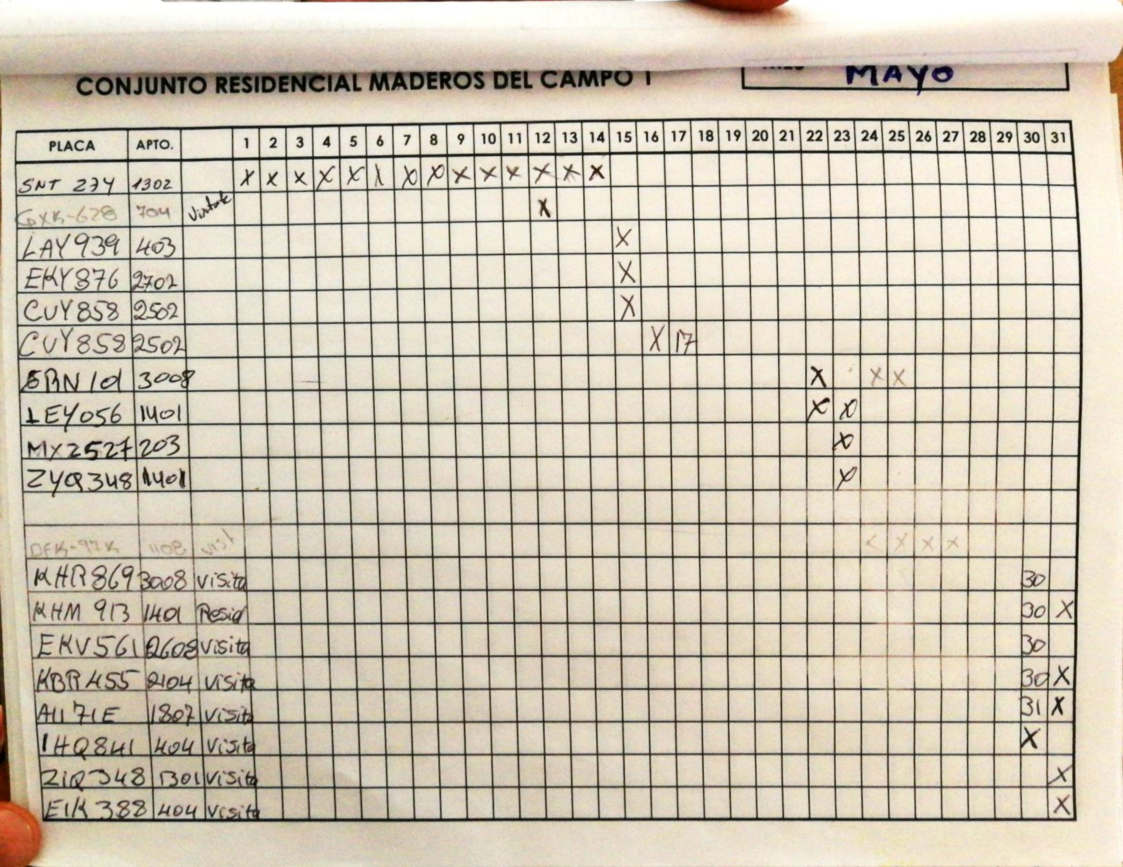 CONJUNTO RESIDENCIAL MADEROS DEL CAMPO 1
MAYO
PLACA APTO. 1 2 3 4 5 6 7 8 9 10 11 12 13 14 15 16 17 18 19 20 21 22 23 24 25 26 27 28 29 30 31
SNT 274 1302 X X X X X X X X X X X X X X
704 X
LAY939 403 X
EKY876 2702 X
CUY858 2502 X
CUY858 2502 X 17
3008 X X X
LEY056 1401 X X
MX2527 203 X
ZYQ348 1401 X
1108 visit X X X X
KHR869 3008 visita 30
KHM 913 1401 Resid 30 X
EKV561 2608 visita 30
KBR455 2104 visita 30 X
AII71E 1807 visita 31 X
IHQ841 404 visita X
ZIQ348 1301 visita X
EIK 388 404 visita X